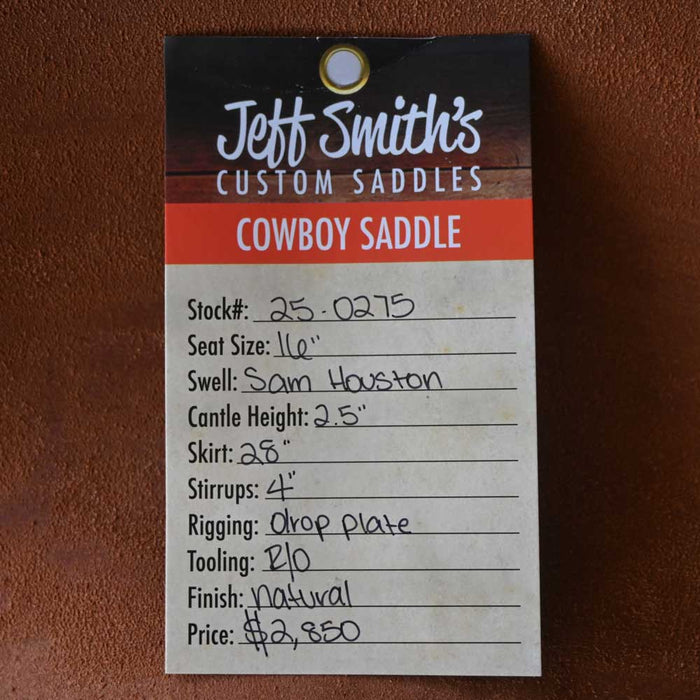 Jeff Smith's
CUSTOM SADDLES
COWBOY SADDLE
Stock#: 25-0275
Seat Size: 16"
Swell: Sam Houston
Cantle Height: 2.5"
Skirt: 28"
Stirrups: 4"
Rigging: drop plate
Tooling: R/O
Finish: natural
Price: $2,850